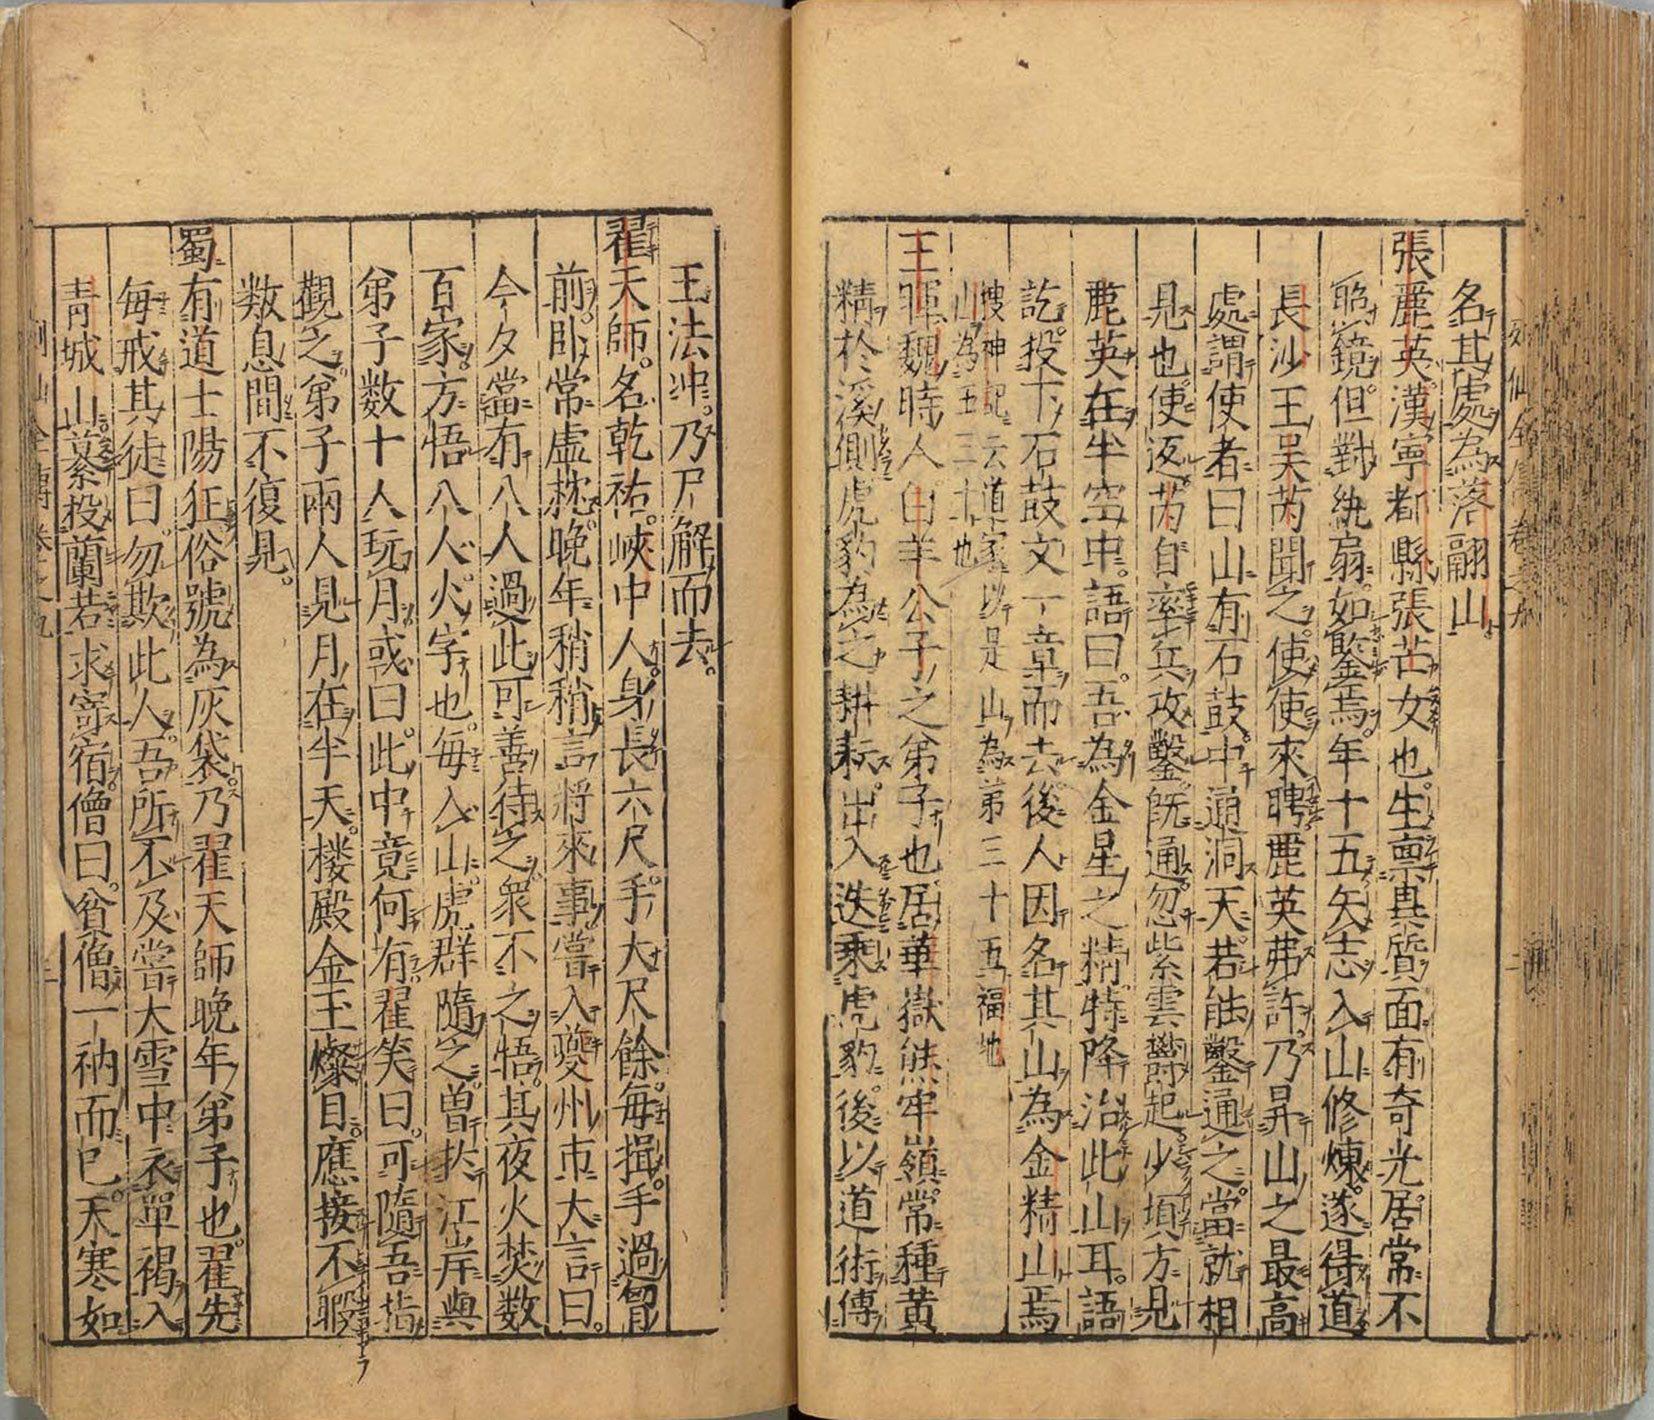 名其處為落翮山
張麗英漢寧都縣張芒女也生禀異質面有奇光居常不
照鏡但對紈扇如鑒焉年十五矢志入山修煉遂得道
長沙王吴芮聞之使使來聘麗英弗許乃昇山之最高
處謂使者曰山有石鼓中通洞天若能鑿通之當就相
見也使返芮自率兵攻鑿既通忽紫雲欝起少頃方見
麗英在半空中語曰吾為金星之精特降治此山耳語
訖投下石鼓文一章而去後人因名其山為金精山焉
搜神記云道家以是山為第三十五福地
山為五三十也
王暉魏時人白羊公子之弟子也居華嶽熊牢嶺常種黄
精於溪側虎豹為之耕耘出入迭乗虎豹後以道術傳
王法冲乃尸解而去
翟天師名乾祐峽中人身長六尺手大尺餘每揖手過胷
前卧常虚枕晚年稍稍言將來事嘗入夔州市大言曰
今夕當有八人過此可善待之衆不之悟其夜火焚数
百家方悟八人火字也每入山虎群隨之曽於江岸與
弟子数十人玩月或曰此中竟何有翟笑曰可隨吾指
觀之弟子兩人見月在半天楼殿金玉燦目應接不暇
数息間不復見
蜀有道士陽狂俗號為灰袋乃翟天師晚年弟子也翟先
每戒其徒曰勿欺此人吾所不及嘗大雪中衣單褐入
青城山暮投蘭若求寄宿僧曰貧僧一衲而已天寒如
列仙全傳卷之九